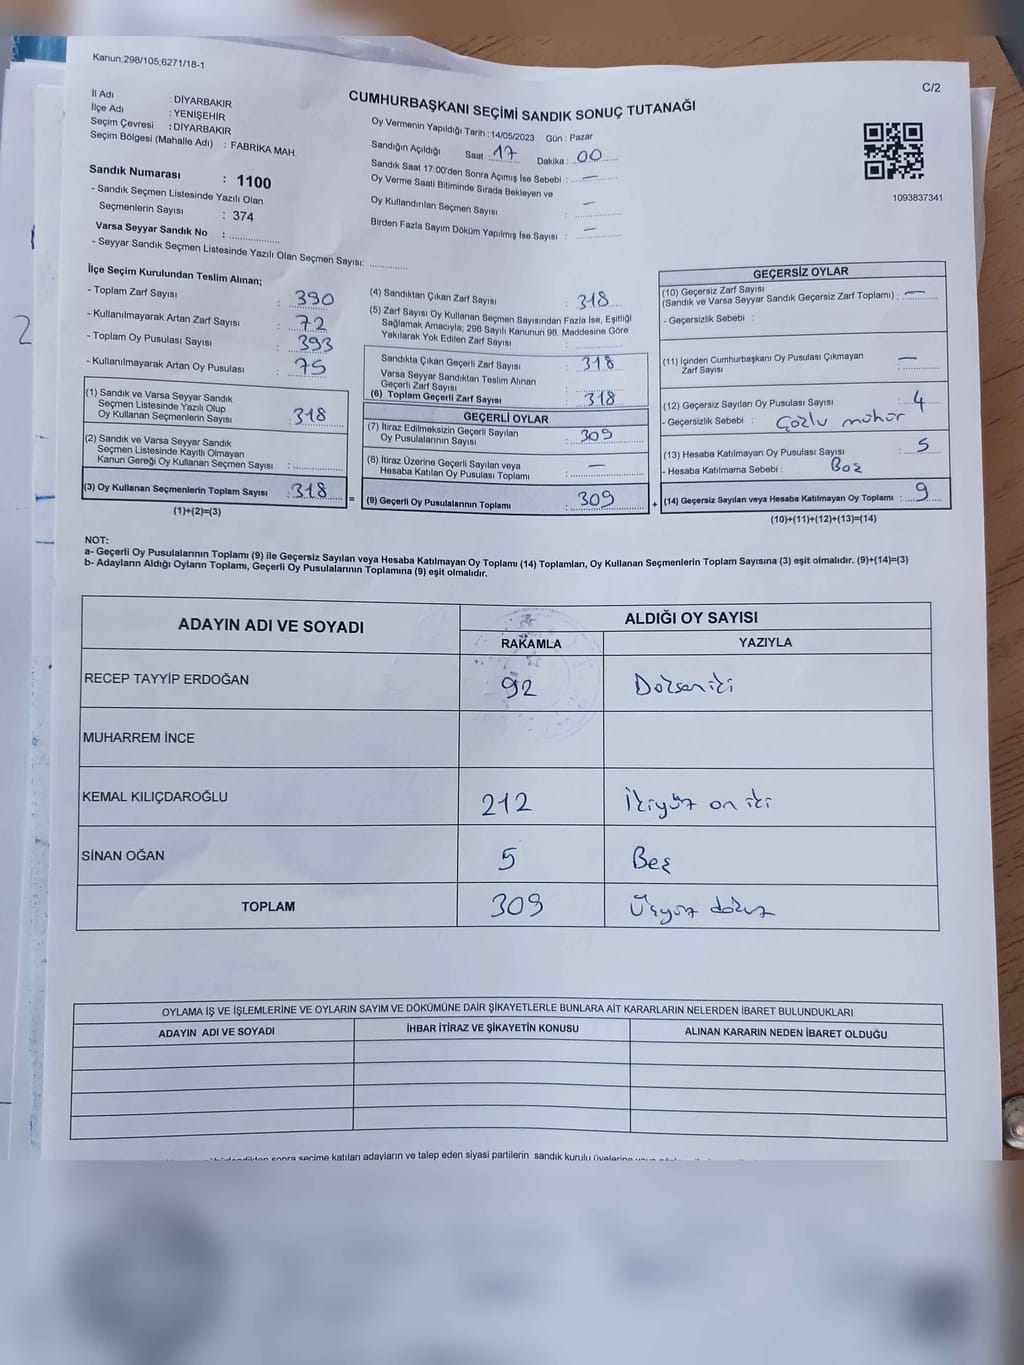 Kanun;298/105;6271/18-1
C/2
CUMHURBAŞKANI SEÇİMİ SANDIK SONUÇ TUTANAĞI
İl Adı : DİYARBAKIR
İlçe Adı : YENİŞEHİR
Seçim Çevresi : DİYARBAKIR
Seçim Bölgesi (Mahalle Adı) : FABRİKA MAH.
Sandık Numarası : 1100
- Sandık Seçmen Listesinde Yazılı Olan
Seçmenlerin Sayısı : 374
Varsa Seyyar Sandık No : ................
- Seyyar Sandık Seçmen Listesinde Yazılı Olan Seçmen Sayısı: ............
Oy Vermenin Yapıldığı Tarih : 14/05/2023 Gün : Pazar
Sandığın Açıldığı Saat : 17 Dakika : 00
Sandık Saat 17:00'den Sonra Açımış İse Sebebi : —
Oy Verme Saati Bitiminde Sırada Bekleyen ve
Oy Kullandırılan Seçmen Sayısı : —
Birden Fazla Sayım Döküm Yapılmış İse Sayısı : —
1093837341
2
İlçe Seçim Kurulundan Teslim Alınan;
- Toplam Zarf Sayısı : 390
- Kullanılmayarak Artan Zarf Sayısı : 72
- Toplam Oy Pusulası Sayısı : 393
- Kullanılmayarak Artan Oy Pusulası : 75
(1) Sandık ve Varsa Seyyar Sandık
Seçmen Listesinde Yazılı Olup
Oy Kullanan Seçmenlerin Sayısı : 318
(2) Sandık ve Varsa Seyyar Sandık
Seçmen Listesinde Kayıtlı Olmayan
Kanun Gereği Oy Kullanan Seçmen Sayısı : ............
(3) Oy Kullanan Seçmenlerin Toplam Sayısı : 318
(1)+(2)=(3)
=
(4) Sandıktan Çıkan Zarf Sayısı : 318
(5) Zarf Sayısı Oy Kullanan Seçmen Sayısından Fazla İse, Eşitliği
Sağlamak Amacıyla; 298 Sayılı Kanunun 98. Maddesine Göre
Yakılarak Yok Edilen Zarf Sayısı : ............
Sandıkta Çıkan Geçerli Zarf Sayısı : 318
Varsa Seyyar Sandıktan Teslim Alınan
Geçerli Zarf Sayısı : ............
(6) Toplam Geçerli Zarf Sayısı : 318
GEÇERLİ OYLAR
(7) İtiraz Edilmeksizin Geçerli Sayılan
Oy Pusulalarının Sayısı : 309
(8) İtiraz Üzerine Geçerli Sayılan veya
Hesaba Katılan Oy Pusulası Toplamı : —
(9) Geçerli Oy Pusulalarının Toplamı : 309
+
GEÇERSİZ OYLAR
(10) Geçersiz Zarf Sayısı
(Sandık ve Varsa Seyyar Sandık Geçersiz Zarf Toplamı) : —
- Geçersizlik Sebebi :
(11) İçinden Cumhurbaşkanı Oy Pusulası Çıkmayan
Zarf Sayısı : —
(12) Geçersiz Sayılan Oy Pusulası Sayısı : 4
- Geçersizlik Sebebi : Gözlu mühür
(13) Hesaba Katılmayan Oy Pusulası Sayısı : 5
- Hesaba Katılmama Sebebi : Boş
(14) Geçersiz Sayılan veya Hesaba Katılmayan Oy Toplamı : 9
(10)+(11)+(12)+(13)=(14)
NOT:
a- Geçerli Oy Pusulalarının Toplamı (9) ile Geçersiz Sayılan veya Hesaba Katılmayan Oy Toplamı (14) Toplamları, Oy Kullanan Seçmenlerin Toplam Sayısına (3) eşit olmalıdır. (9)+(14)=(3)
b- Adayların Aldığı Oyların Toplamı, Geçerli Oy Pusulalarının Toplamına (9) eşit olmalıdır.
ADAYIN ADI VE SOYADI ALDIĞI OY SAYISI
RAKAMLA YAZIYLA
RECEP TAYYİP ERDOĞAN 92 Doksan iki
MUHARREM İNCE
KEMAL KILIÇDAROĞLU 212 İkiyüz on iki
SİNAN OĞAN 5 Beş
TOPLAM 309 Üçyüz dokuz
OYLAMA İŞ VE İŞLEMLERİNE VE OYLARIN SAYIM VE DÖKÜMÜNE DAİR ŞİKAYETLERLE BUNLARA AİT KARARLARIN NELERDEN İBARET BULUNDUKLARI
ADAYIN ADI VE SOYADI İHBAR İTİRAZ VE ŞİKAYETİN KONUSU ALINAN KARARIN NEDEN İBARET OLDUĞU
sonra seçime katılan adayların ve talep eden siyasi partilerin sandık kurulu üyelerine